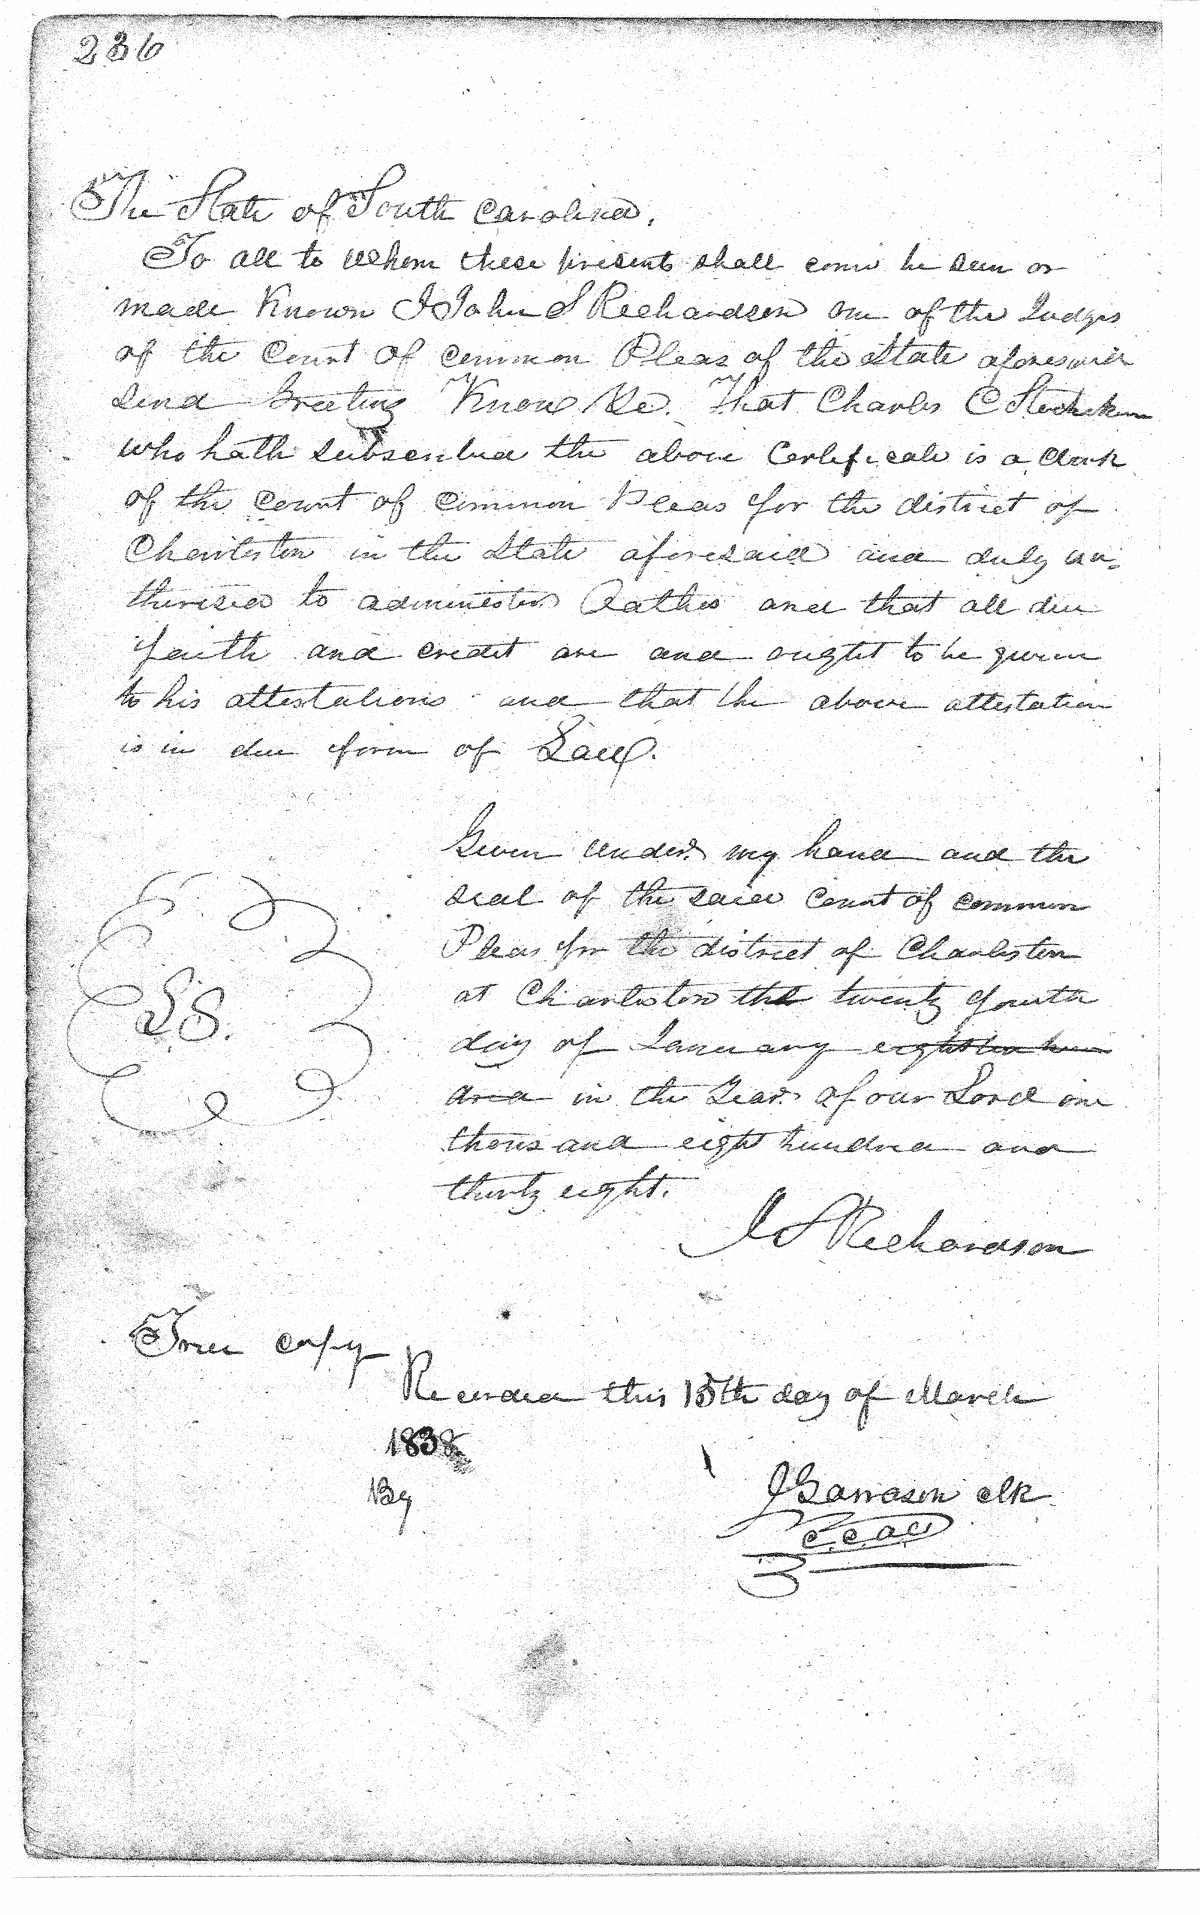 236
The State of South Carolina.
To all to whom these presents shall come be seen or
made Known I John S Richardson one of the Judges
of the Court of Common Pleas of the State aforesaid
send Greeting Know Ye. That Charles C
who hath subscribed the above Certificate is a Clerk
of the Court of Common Pleas for the district of
Charleston in the State aforesaid and duly au-
thorised to administer Oathes and that all due
faith and credit are and ought to be given
to his attestations and that the above attestation
is in due form of Law.
Given under my hand and the
seal of the said Court of Common
Pleas for the district of Charleston
at Charleston the twenty fourth
L.S.
day of January eighteen hun
and in the Year of our Lord one
thousand eight hundred and
thirty eight.
J S Richardson
True copy
Recorded this 15th day of March
1838
By
J Garrason clk